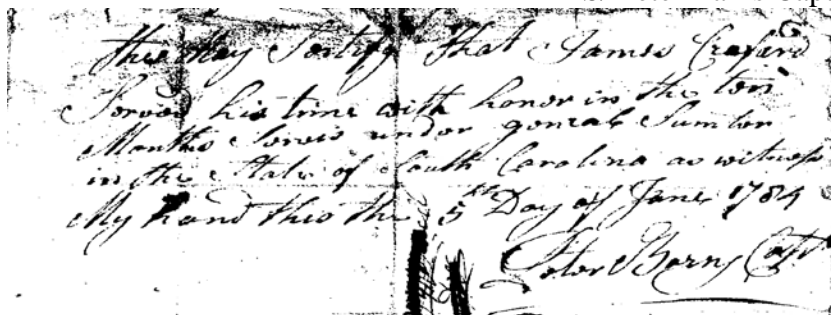 this may Sertify that James Craford
Served his time with honor in the ten
Months Servis under genral Sumter
in the State of South Carolina as witness
My hand this the 5th Day of June 1784
Peter Burns Capt